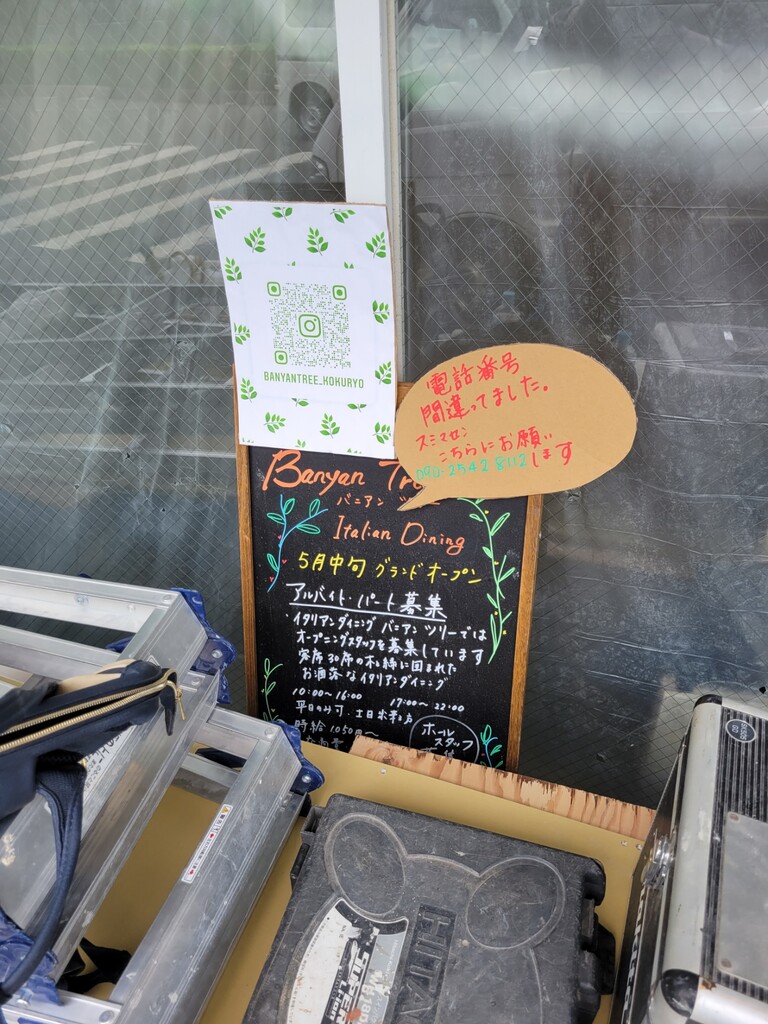 BANYANTREE_KOKURYO
電話番号
間違ってました。
スミマセン
こちらにお願い
090-2542-8112 します
Banyan
バニアン ツリー
Italian Dining
5月中旬 グランドオープン
アルバイト・パート募集
イタリアンダイニング バニアン ツリーでは
オープニングスタッフを募集しています
客席30席の木と緑に囲まれた
お洒落なイタリアンダイニング
10:00~16:00 17:00~22:00
平日のみ可
時給1050円~
ホール
スタッフ
HITA